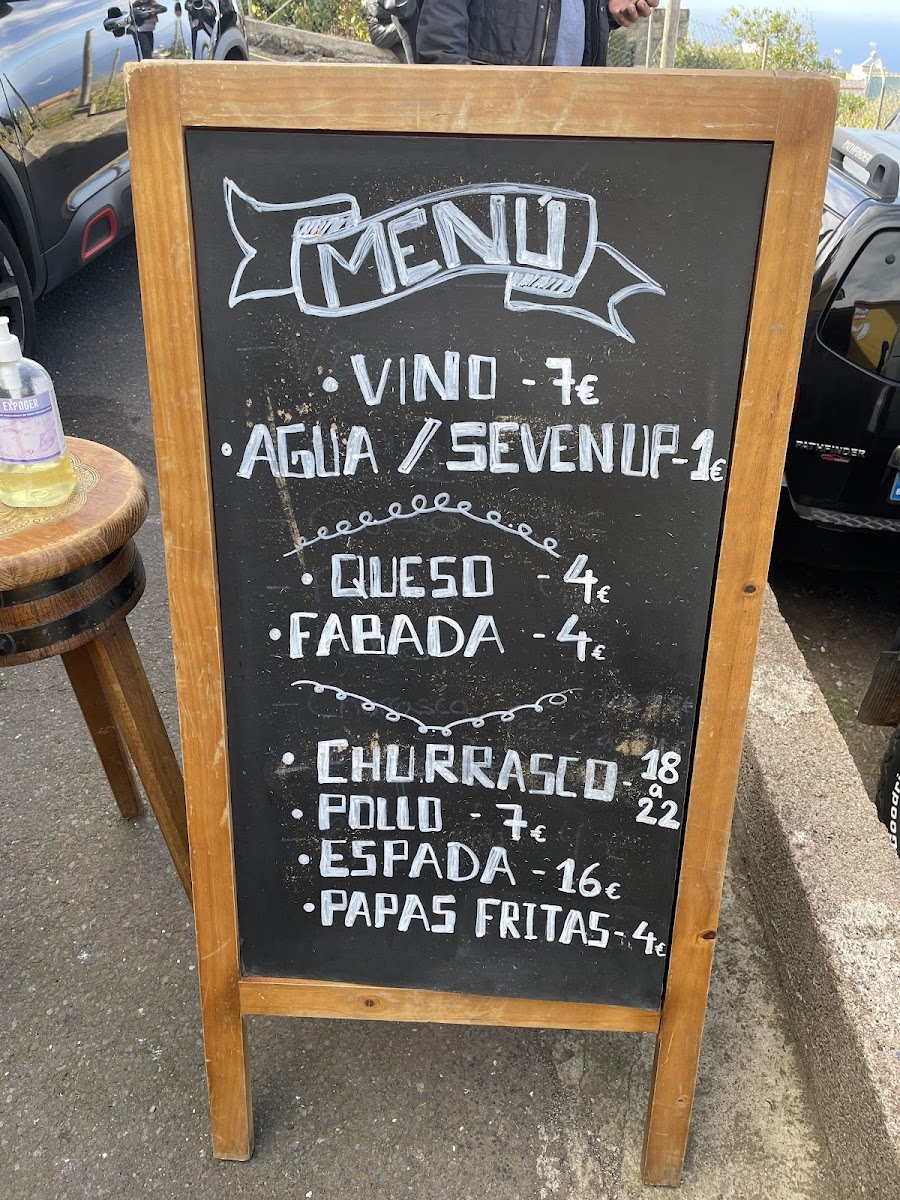 MENÚ
• VINO - 7€
• AGUA / SEVENUP - 1€
• QUESO - 4€
• FABADA - 4€
• CHURRASCO - 18 a 22
• POLLO - 7€
• ESPADA - 16€
• PAPAS FRITAS - 4€
EXPOGER
PATHFINDER
PATHFINDER